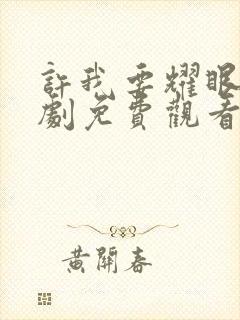 許我要耀眼
劇免費觀看
黃開春